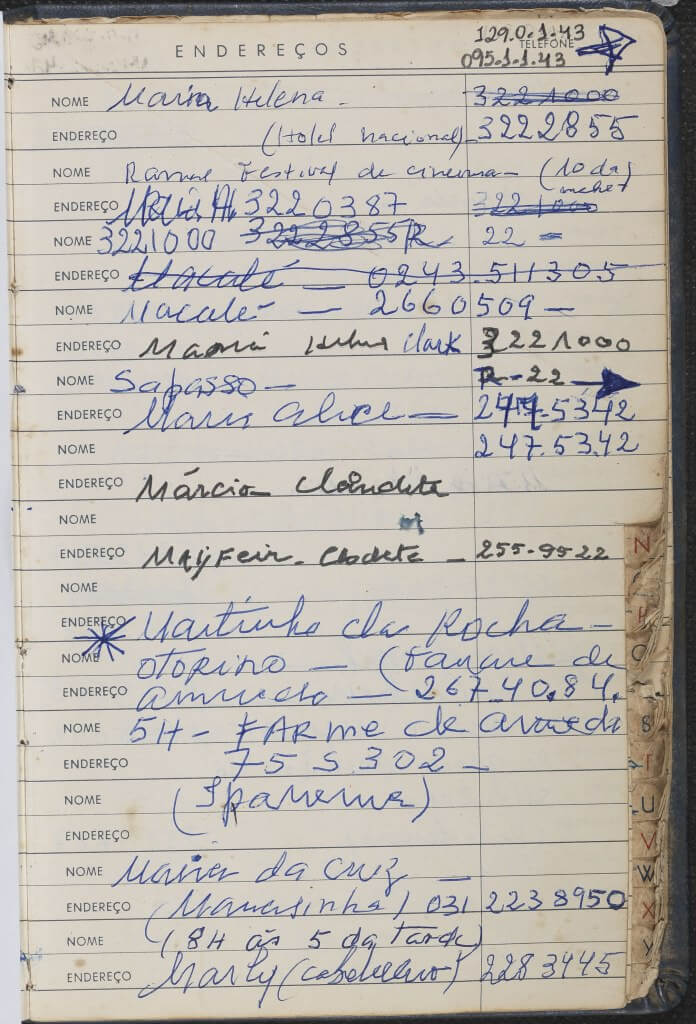 129.0.1.43
ENDEREÇOS TELEFONE
095.1.1.43
NOME Maria Helena - 3221000
ENDEREÇO (Hotel nacional) 3222855
NOME Festival de cinema - (10 da
ENDEREÇO 3220387 3221000
NOME 3221000 3222855 R. 22 -
ENDEREÇO Macalé - 0243.511305
NOME Macalé - 2660509 -
ENDEREÇO Maria Helena Clark 3221000
NOME Sapasso - R-22
ENDEREÇO Maria Alice - 247-5342
NOME 247.53.42
ENDEREÇO Márcia Claudete
NOME
ENDEREÇO Mayfeir - - 255-95-22
NOME
ENDEREÇO Martinho da Rocha -
NOME otorino - ( de
ENDEREÇO - 267.40.84.
NOME 5H - FARme de
ENDEREÇO 75 S 302 -
NOME (Ipanema)
ENDEREÇO
NOME Maria da Cruz -
ENDEREÇO ( ) 031 2238950
NOME (8H às 5 da tarde)
ENDEREÇO Marly 2283445
N
P
Q
S
T
U
V
W
X
Y